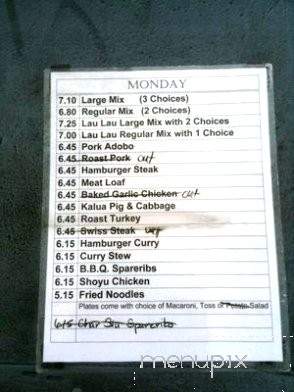 MONDAY
7.10 Large Mix (3 Choices)
6.80 Regular Mix (2 Choices)
7.25 Lau Lau Large Mix with 2 Choices
7.00 Lau Lau Regular Mix with 1 Choice
6.45 Pork Adobo
6.45 Roast Pork cut
6.45 Hamburger Steak
6.45 Meat Loaf
6.45 Baked Garlic Chicken cut
6.45 Kalua Pig & Cabbage
6.45 Roast Turkey
6.45 Swiss Steak cut
6.15 Hamburger Curry
6.15 Curry Stew
6.15 B.B.Q. Spareribs
6.15 Shoyu Chicken
5.15 Fried Noodles
Plates come with choice of Macaroni, Toss or Potato Salad
6.15 Char Siu Spareribs
menupix